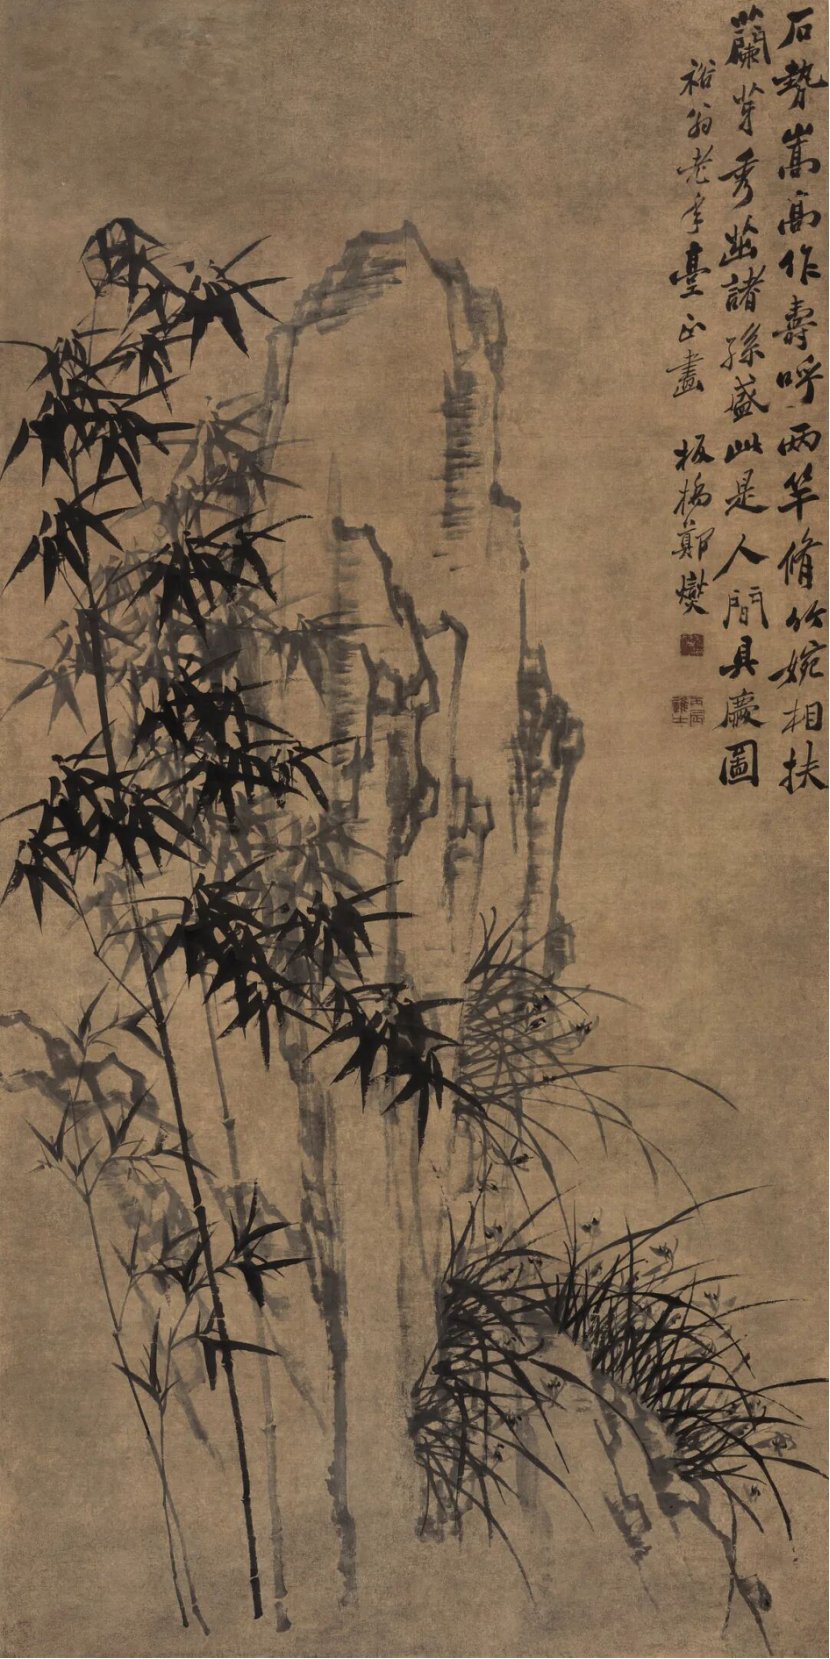 石勢嵩高作壽呼兩竿脩竹婉相扶
蘭芽秀茁諸孫盛此是人間具慶圖
裕翁老年臺正畫 板橋鄭燮